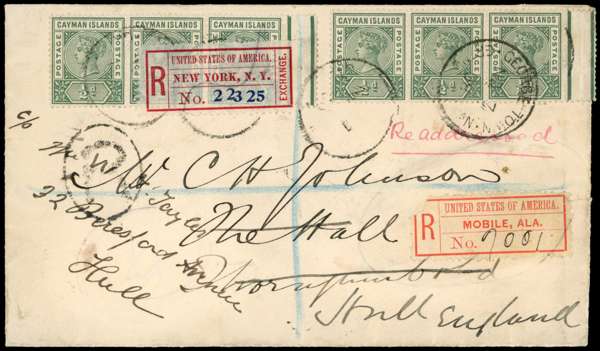 CAYMAN ISLANDS
POSTAGE POSTAGE
½d
CAYMAN ISLANDS
POSTAGE POSTAGE
½d
CAYMAN ISLANDS
POSTAGE POSTAGE
½d
CAYMAN ISLANDS
POSTAGE POSTAGE
½d
CAYMAN ISLANDS
POSTAGE POSTAGE
½d
CAYMAN ISLANDS
POSTAGE POSTAGE
½d
R
UNITED STATES OF AMERICA.
NEW YORK, N. Y.
No. 22325
EXCHANGE.
GEORGE
Readdressed
c/o
R
Mr C H Johnson
The Hall
Hull England
32 Beresford Avenue
Hull
R
UNITED STATES OF AMERICA.
MOBILE, ALA.
No. 7001